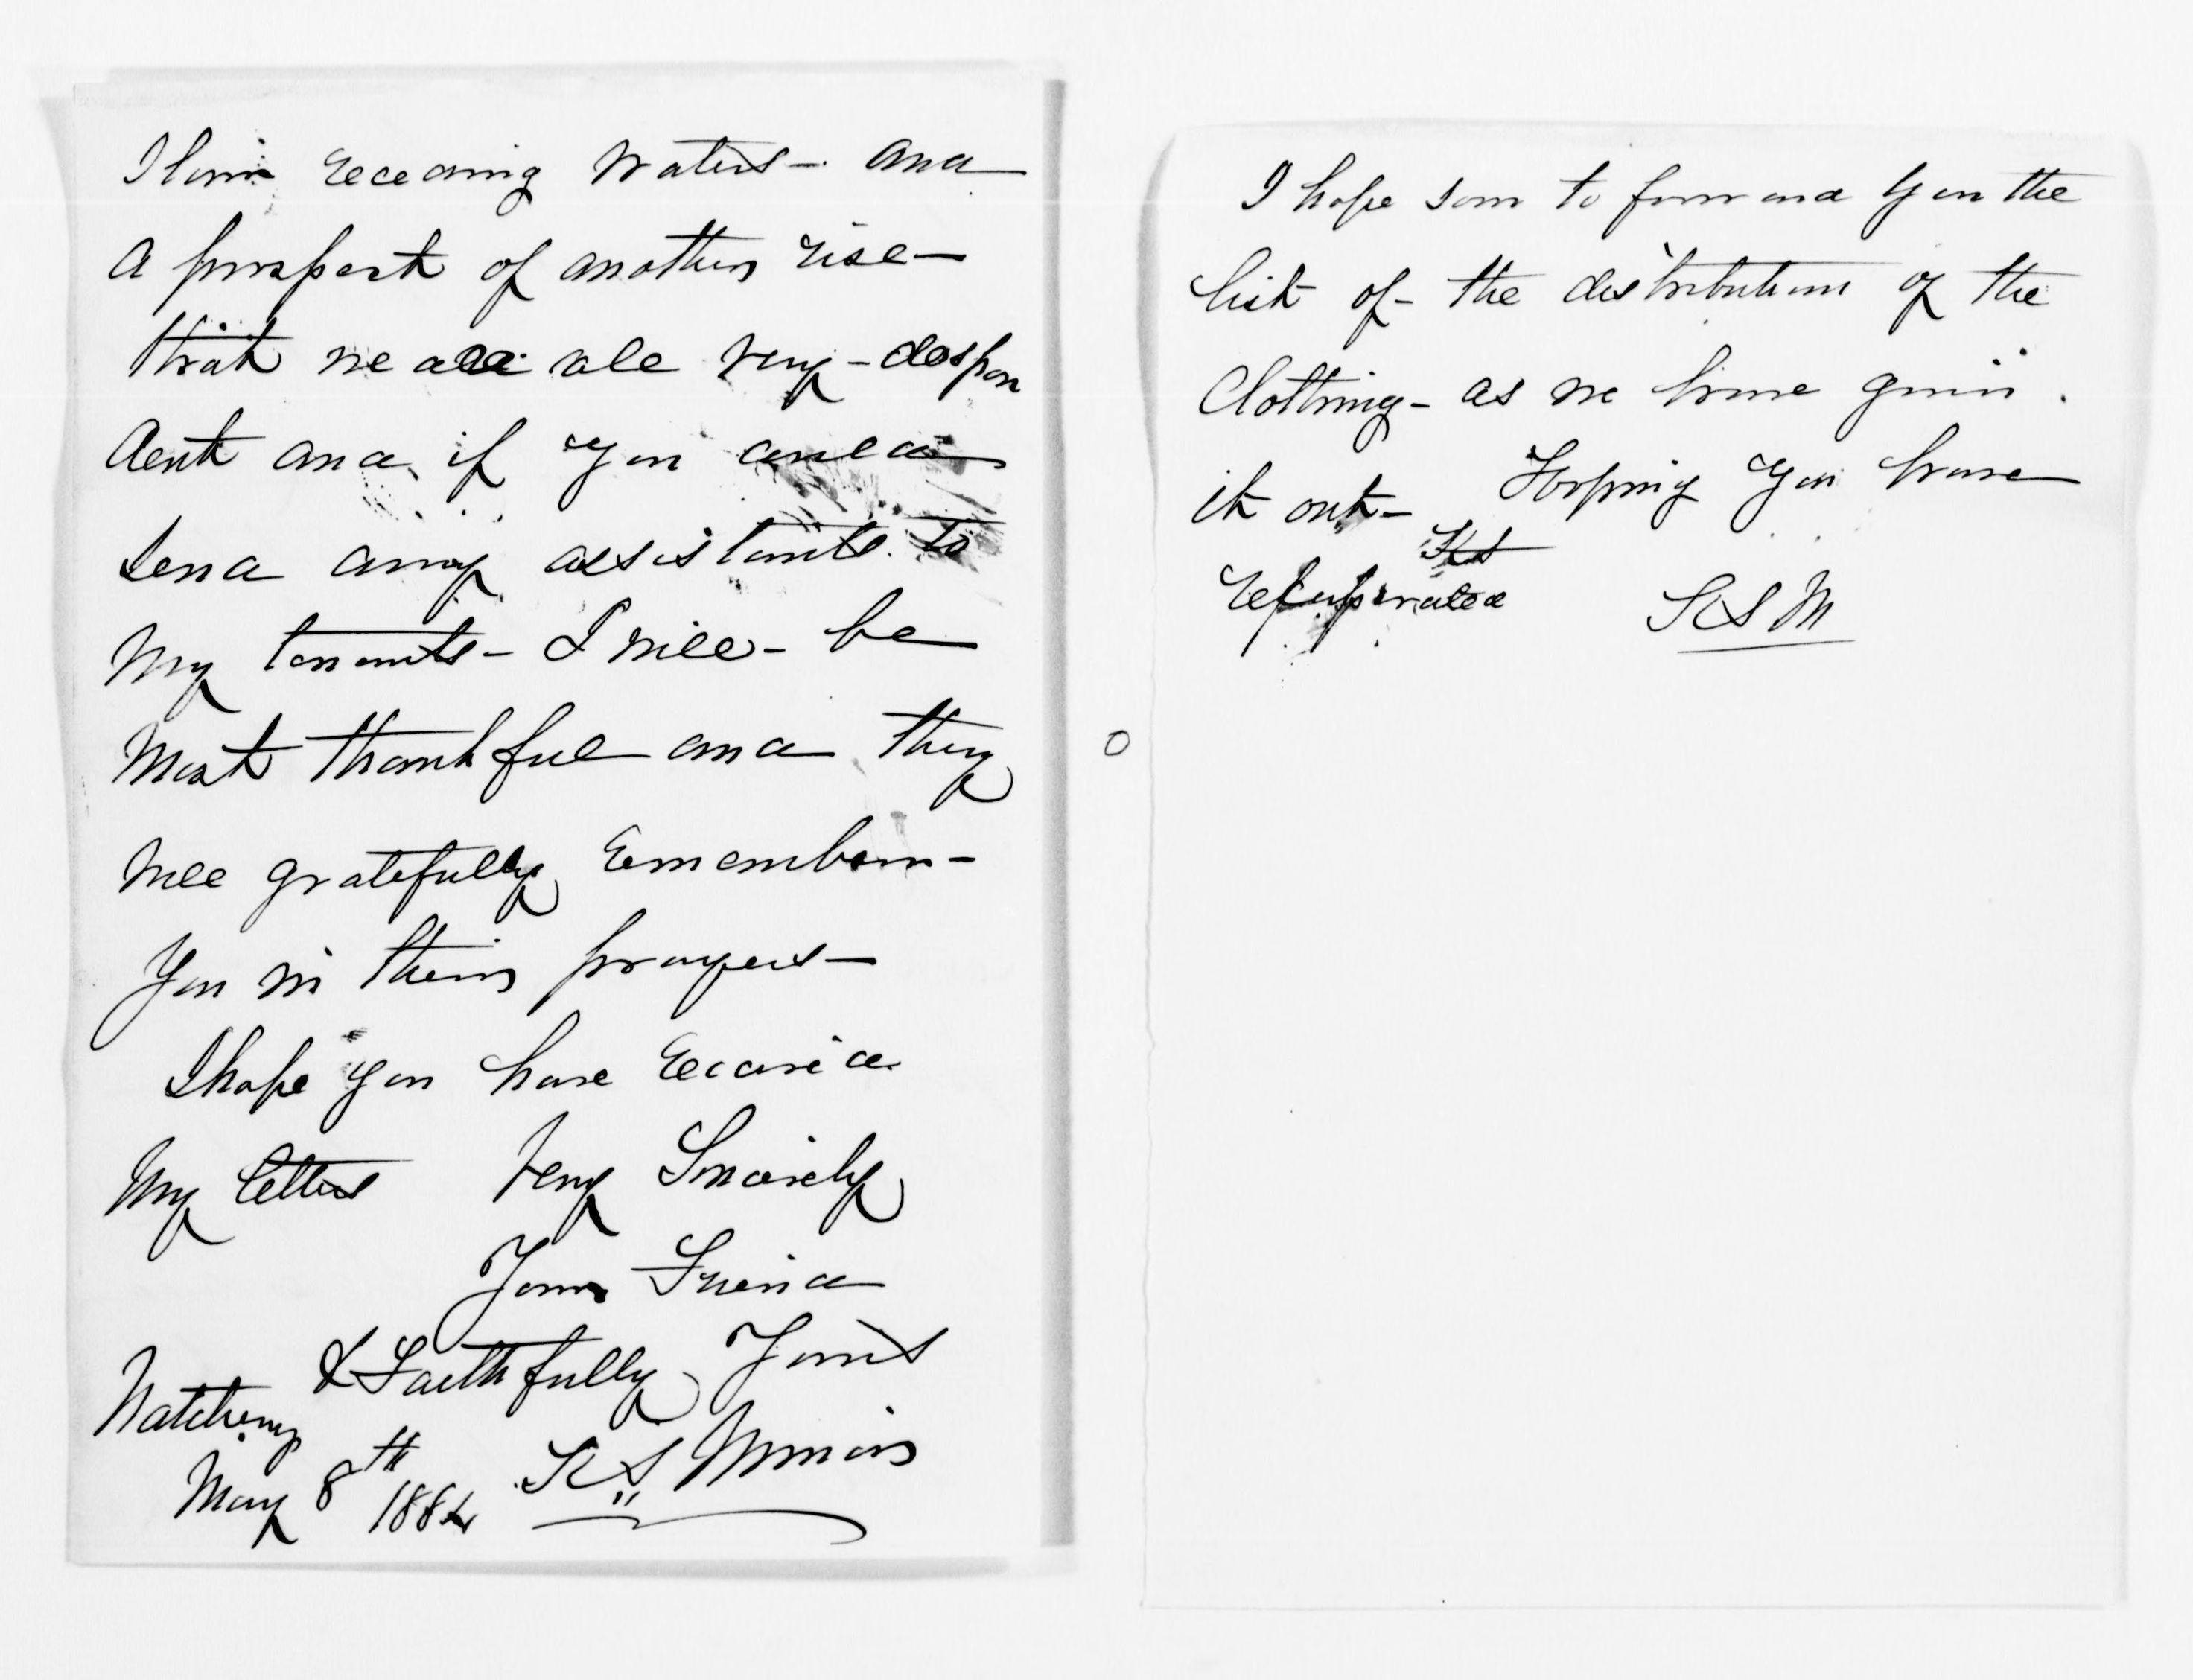 Slow receding waters - and
a prospect of another rise -
that we all are very - despon
dent and if you could
send any assistants to
My tenants - I will - be
Most thankful and they
will gratefully remember -
You in their prayers -
I hope you have received
My letters Very Sincerely
Your Friend
& Faithfully Yours
Natchez
K S Minor
May 8th 1884
I hope soon to forward you the
list of - the distribution of the
Clothing - as we have given
it out - Hoping you have
KS
recuperated K S M